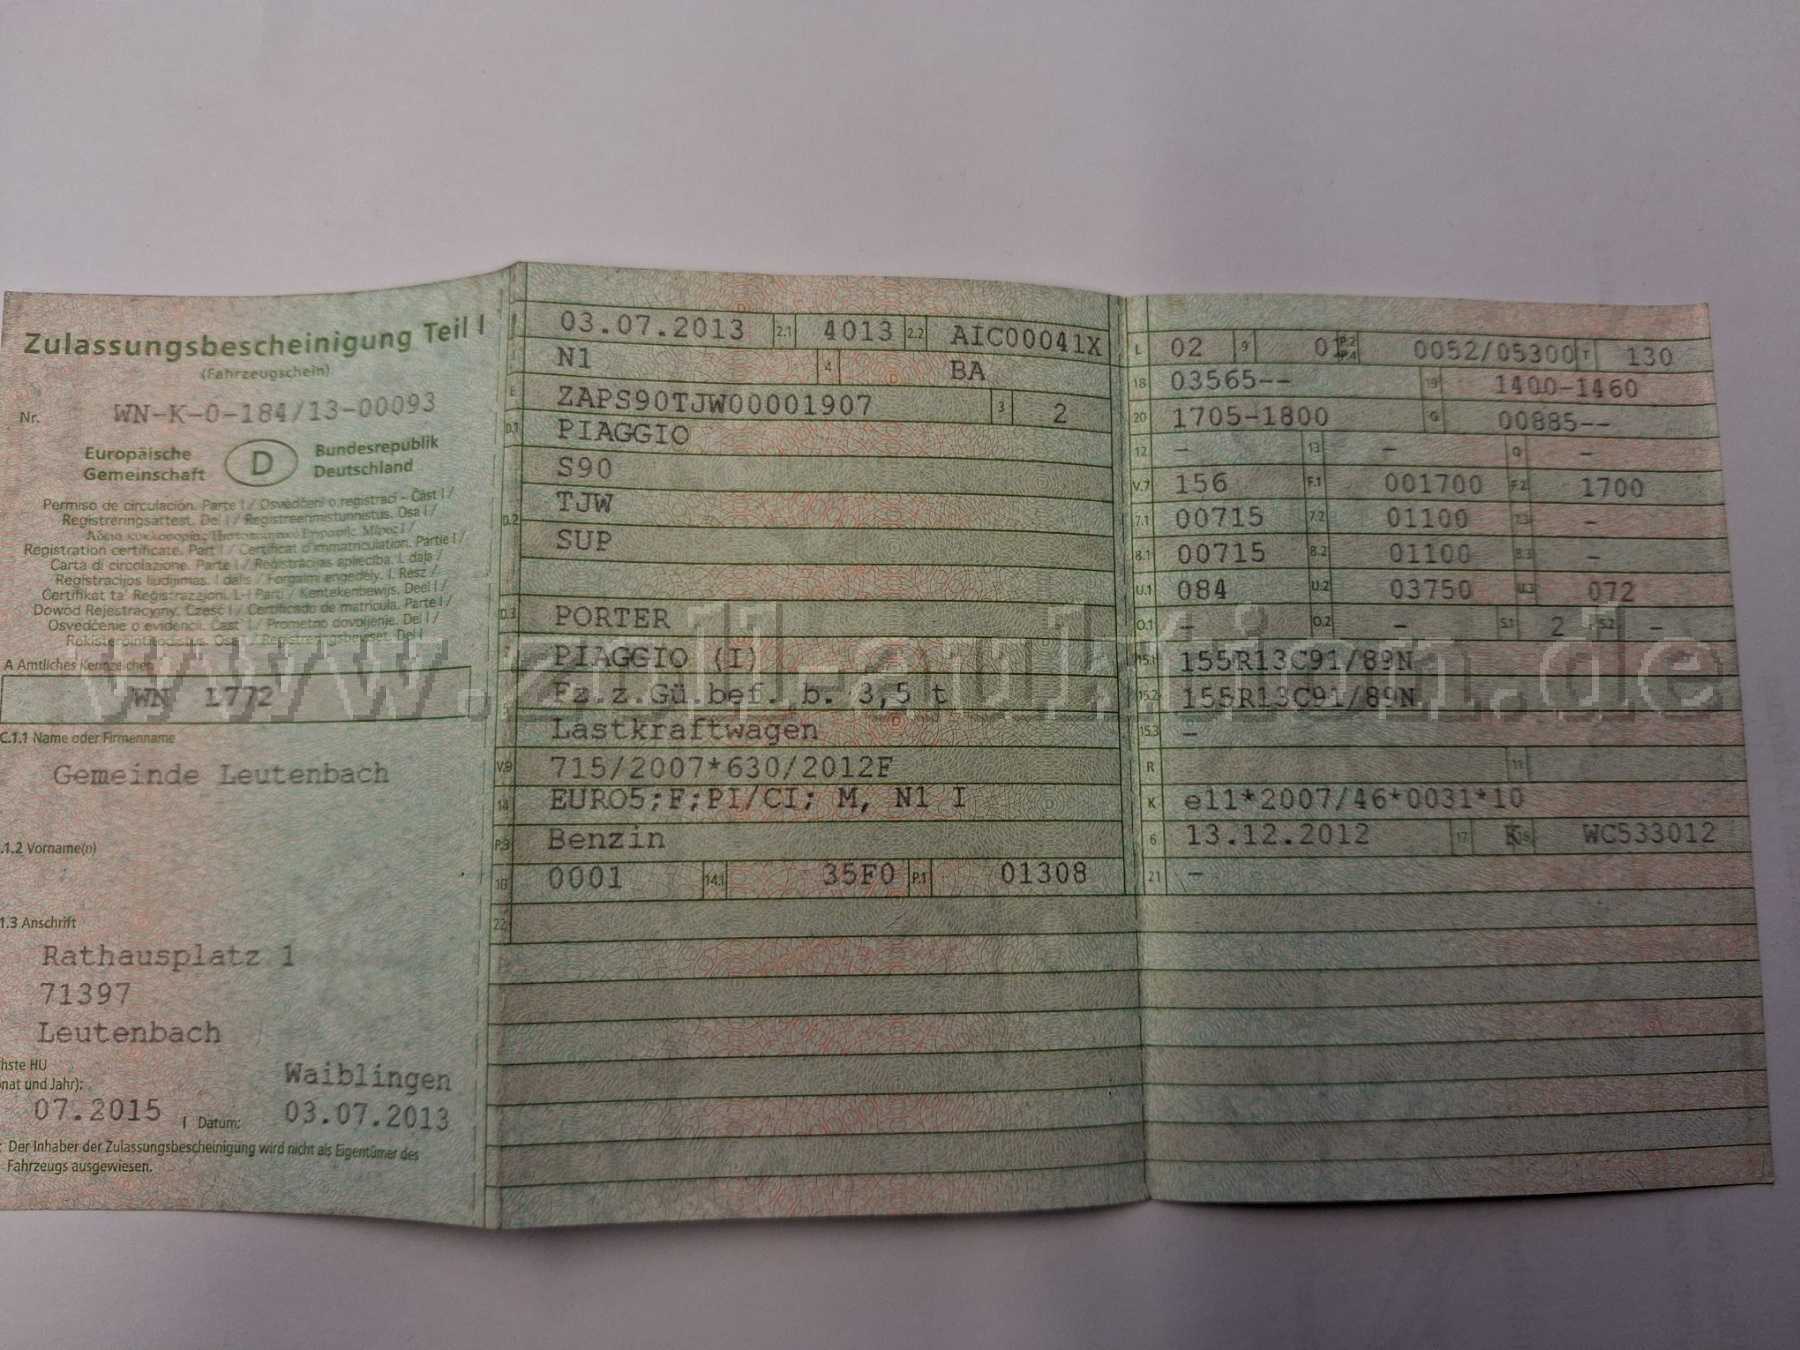 Zulassungsbescheinigung Teil I
(Fahrzeugschein)
Nr. WN-K-0-184/13-00093
Europäische Gemeinschaft
D
Bundesrepublik Deutschland
Permiso de circulación. Parte I / Osvědčení o registraci – Část I /
Registreringsattest. Del I / Registreerimistunnistus. Osa I /
Registration certificate. Part I / Certificat d'immatriculation. Partie I /
Carta di circolazione. Parte I / Reģistrācijas apliecība. I. daļa /
Registracijos liudijimas. I dalis / Forgalmi engedély. I. Rész /
Ċertifikat ta' Reġistrazzjoni. L-I Parti / Kentekenbewijs. Deel I /
Dowód Rejestracyjny. Część I / Certificado de matrícula. Parte I /
Osvedčenie o evidencii. Časť I / Prometno dovoljenje. Del I /
Rekisteröintitodistus. Osa I / Registreringsbeviset. Del I
A Amtliches Kennzeichen
WN L772
C.1.1 Name oder Firmenname
Gemeinde Leutenbach
.1.2 Vorname(n)
1.3 Anschrift
Rathausplatz 1
71397
Leutenbach
hste HU
nat und Jahr):
07.2015
I Datum:
Waiblingen
03.07.2013
: Der Inhaber der Zulassungsbescheinigung wird nicht als Eigentümer des
Fahrzeugs ausgewiesen.
03.07.2013 2.1 4013 2.2 AIC00041X
N1 4 BA
E ZAPS90TJW00001907 3 2
D.1 PIAGGIO
S90
D.2 TJW
SUP
D.3 PORTER
2 PIAGGIO (I)
5 Fz.z.Gü.bef. b. 3,5 t
Lastkraftwagen
V.9 715/2007*630/2012F
14 EURO5;F;PI/CI; M, N1 I
P.3 Benzin
10 0001 14.1 35F0 P.1 01308
22
L 02 9 01 P.2 P.4 0052/05300 T 130
18 03565-- 19 1400-1460
20 1705-1800 G 00885--
12 – 13 – Q –
V.7 156 F.1 001700 F.2 1700
7.1 00715 7.2 01100 7.3 –
8.1 00715 8.2 01100 8.3 –
U.1 084 U.2 03750 U.3 072
O.1 – O.2 – S.1 2 S.2 –
15.1 155R13C91/89N
15.2 155R13C91/89N
15.3 –
R 11
K e11*2007/46*0031*10
6 13.12.2012 17 K 16 WC533012
21 –
www.zoll-auktion.de